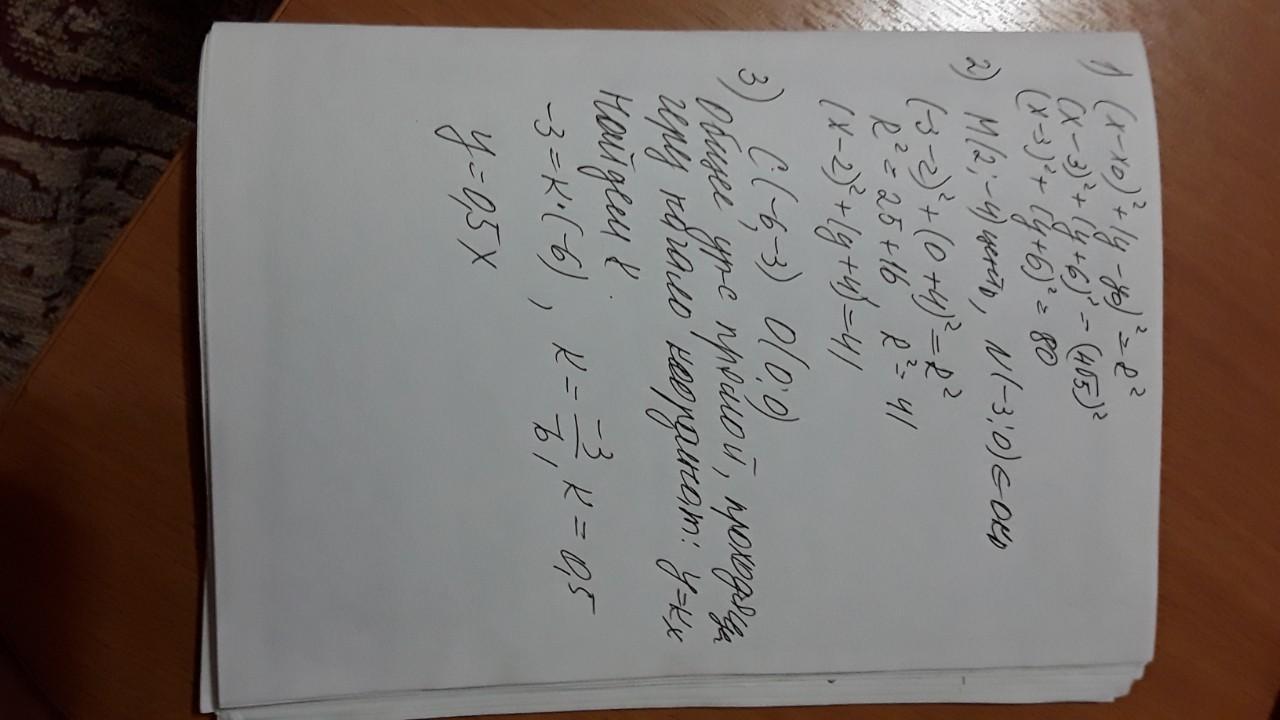 1) (x-x0)² + (y-y0)² = R²
(x-3)² + (y+6)² = (4√5)²
(x-3)² + (y+6)² = 80
2) M(2;-4) центр, N(-3;0) ∈ окр
(-3-2)² + (0+4)² = R²
R² = 25+16 R² = 41
(x-2)² + (y+4)² = 41
3) C(-6;-3) O(0;0)
Общее ур-е прямой, проходящ
через начало координат: y=kx
найдем k
-3 = k·(-6), k = -3/-6, k = 0,5
y = 0,5x